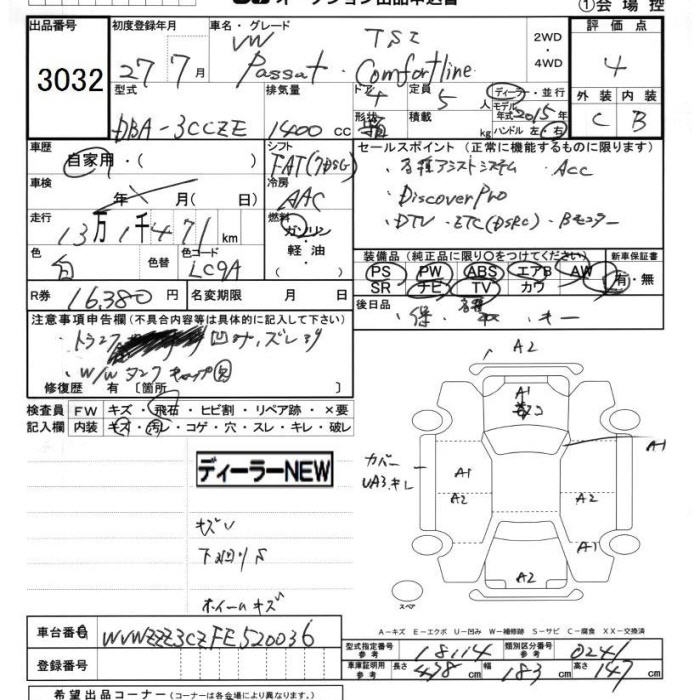 オークション出品申込書
①会場控
出品番号 初度登録年月 車名・グレード 評価点
3032 27年7月 VW TSI 2WD ・4WD 4
Passat・Comfortline
型式 排気量 ドア 定員 ディーラー・並行
4 5人 モデル年式 2015年 外装 内装
DBA-3CCZE 1400cc 形状 積載 kg ハンドル 左・右 C B
車歴 シフト セールスポイント(正常に機能するものに限ります)
自家用・( ) FAT(7DSG) ・各種アシストシステム ・Acc
車検 冷房 ・Discover Pro
年 月( 日) AAC ・DTV ・ETC(DSRC)・Bモニター
走行 燃料
13万1千471km ガソリン
色 色替 色コード 軽油 装備品(純正品に限り○をつけてください) 新車保証書
白 LC9A ( ) PS PW ABS エアB AW 有・無
SR ナビ TV カワ
R券 16,380円 名変期限 月 日 後日品
・保・各種取・キー
注意事項申告欄(不具合内容等は具体的に記入して下さい)
・トランク 凹み,ズレ有
・W/Wタンクキャップ
修復歴 有[箇所 ]
検査員 FW キズ・飛石・ヒビ割・リペア跡・×要
記入欄 内装 キズ・汚レ・コゲ・穴・スレ・キレ・破レ
A2
A1
A1
ディーラーNEW
カバー
UA3.キレ
A1
A2 A2
キズU
下回りS
A1
A2
ホイールキズ
スペア
A-キズ E-エクボ U-凹み W-補修跡 S-サビ C-腐食 XX-交換済
車台番号 WVWZZZ3CZFE520036
型式指定番号 参考 18114 類別区分番号 参考 0241
登録番号 車庫証明用 参考 長さ 478cm 幅 183cm 高さ 147cm
希望出品コーナー(コーナーは各会場により異なります。)